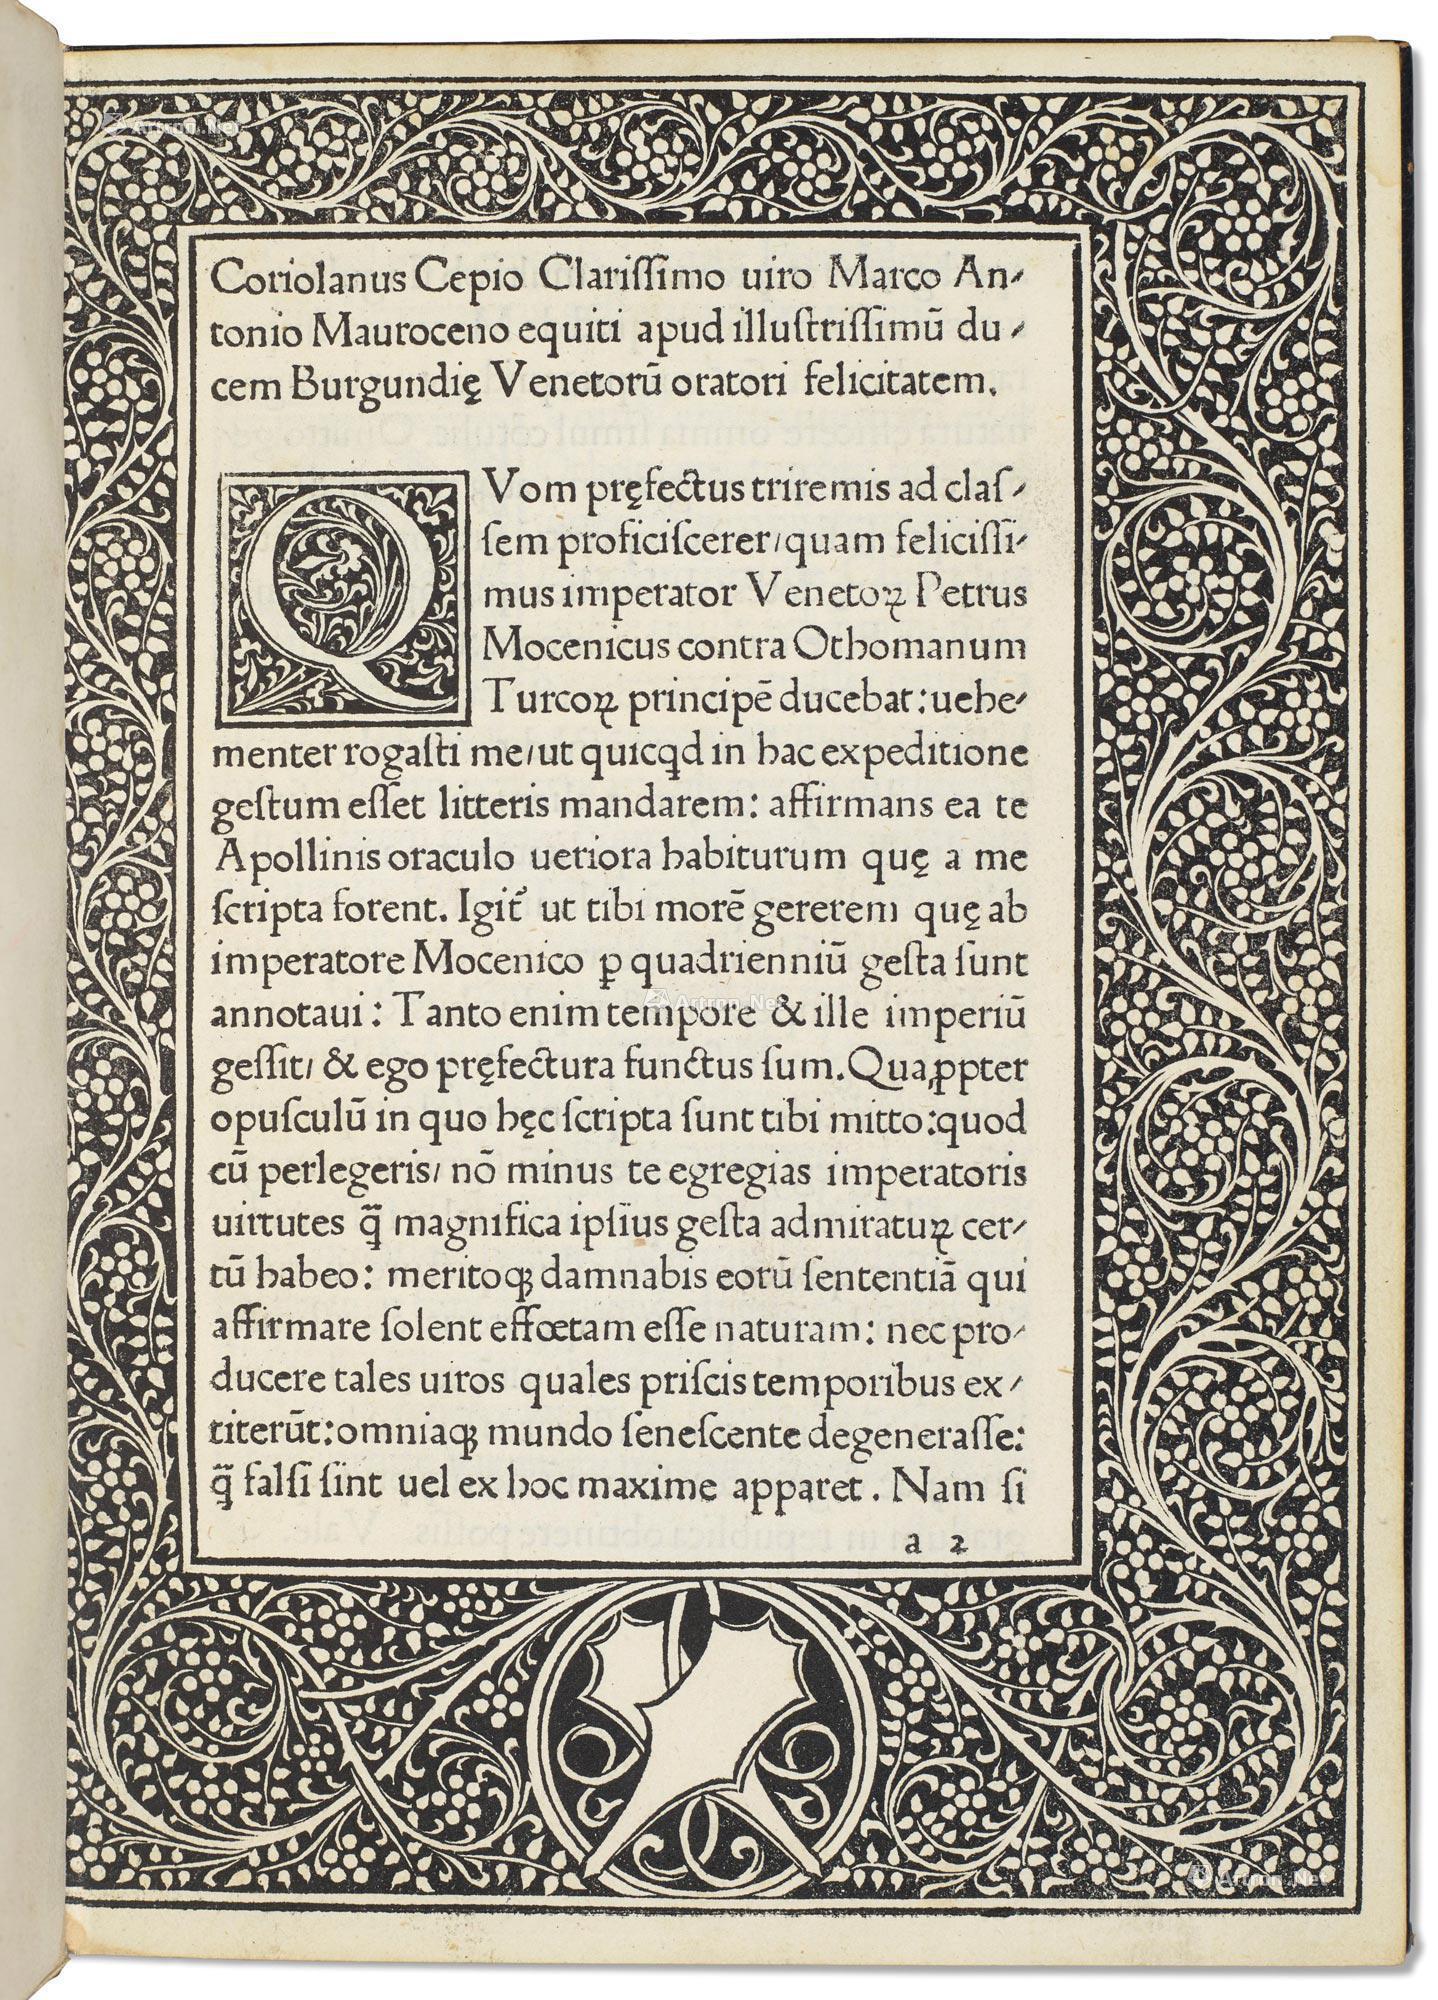 Coriolanus Cepio Clariſſimo uiro Marco An-
tonio Mauroceno equiti apud illuſtriſſimū du-
cem Burgundię Venetorū oratori felicitatem.
QVom pręfectus triremis ad claſ-
ſem proficiſcerer/quam feliciſſi-
mus imperator Venetoꝝ Petrus
Mocenicus contra Othomanum
Turcoꝝ principē ducebat: uehe-
menter rogaſti me/ut quicqd in hac expeditione
geſtum eſſet litteris mandarem: affirmans ea te
Apollinis oraculo ueriora habiturum quę a me
ſcripta forent. Igit̄ ut tibi morē gererem quę ab
imperatore Mocenico ꝑ quadrienniū geſta ſunt
annotaui: Tanto enim tempore & ille imperiū
geſſit/ & ego pręfectura functus ſum. Quaꝓpter
opuſculū in quo hęc ſcripta ſunt tibi mitto: quod
cū perlegeris/ nō minus te egregias imperatoris
uirtutes q̄ magnifica ipſius geſta admiratuꝝ cer-
tū habeo: meritoqꝫ damnabis eorū ſententiā qui
affirmare ſolent effœtam eſſe naturam: nec pro-
ducere tales uiros quales priſcis temporibus ex-
titerūt: omniaqꝫ mundo ſeneſcente degeneraſſe:
q̄ falſi ſint uel ex hoc maxime apparet. Nam ſi
a 2
Artron.Net
Artron.Net
Artron.Net